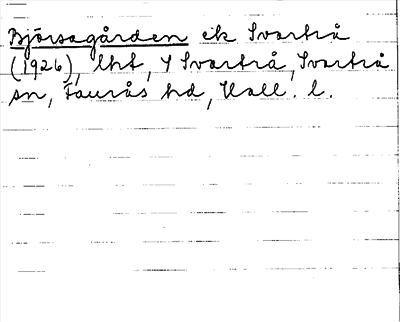 Björsagården ek Svartrå
(1926), lht, Y Svartrå, Svartrå
sn, Faurås hd, Hall. l.